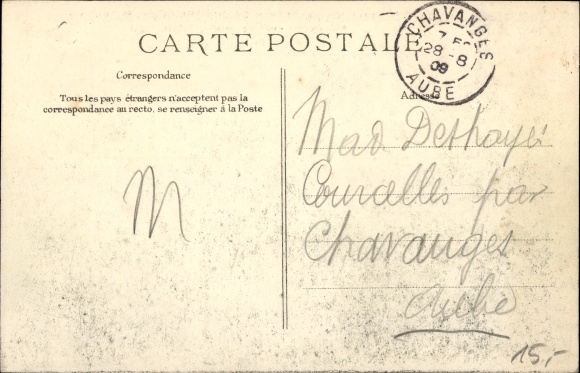 CARTE POSTALE
CHAVANGES
7 E
28 - 8
09
AUBE
Correspondance
Tous les pays étrangers n'acceptent pas la
correspondance au recto, se renseigner à la Poste
Adresse
M
Mad Deshayes
Courcelles par
Chavanges
Aube
15,-